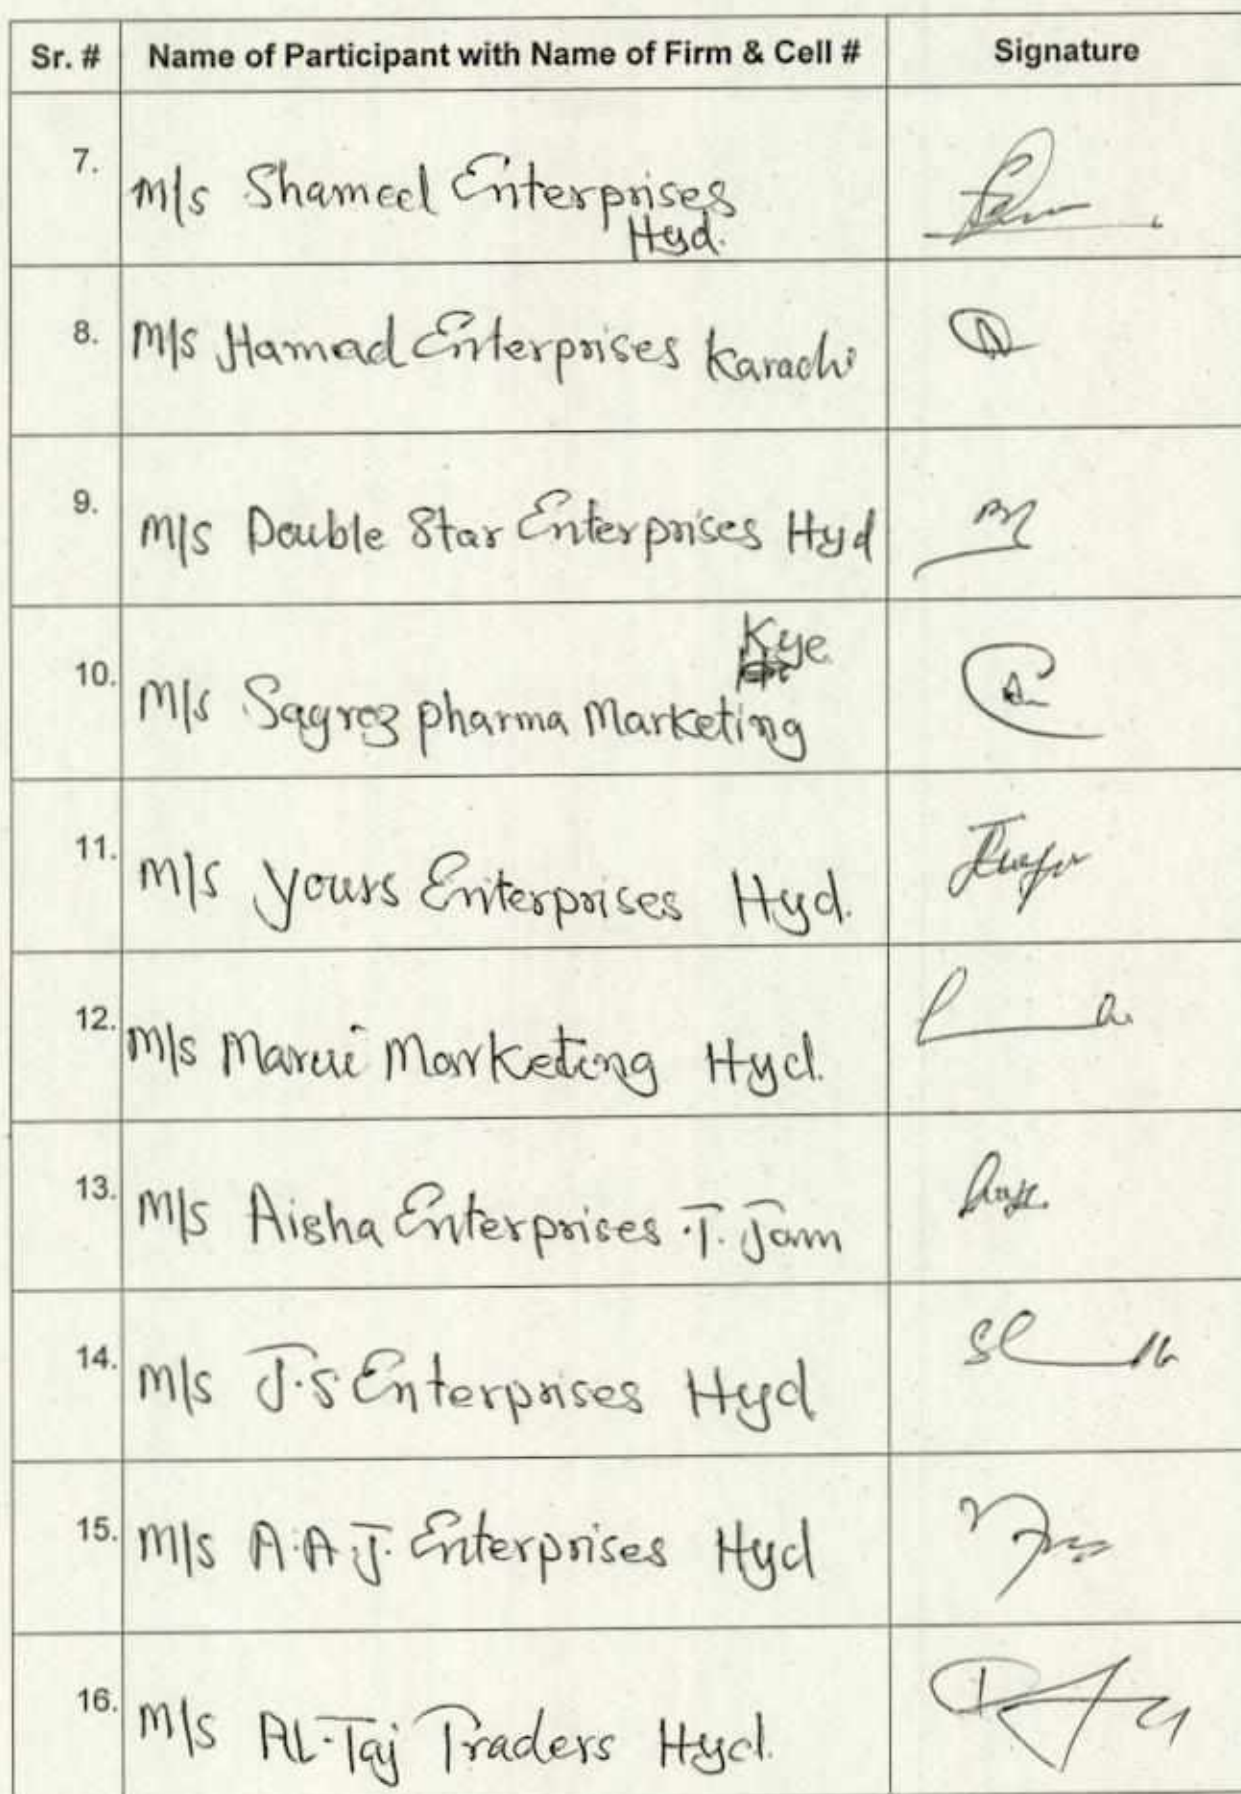 Sr. # Name of Participant with Name of Firm & Cell # Signature
7. M/s Shameel Enterprises
Hyd.
8. M/s Hamad Enterprises Karachi
9. M/s Double Star Enterprises Hyd
Kye
10. M/s Sagrez pharma Marketing
11. M/s Yours Enterprises Hyd.
12. M/s Marui Marketing Hyd.
13. M/s Aisha Enterprises T. Jam
14. M/s J.S Enterprises Hyd
15. M/s A.A J. Enterprises Hyd
16. M/s AL-Taj Traders Hyd.